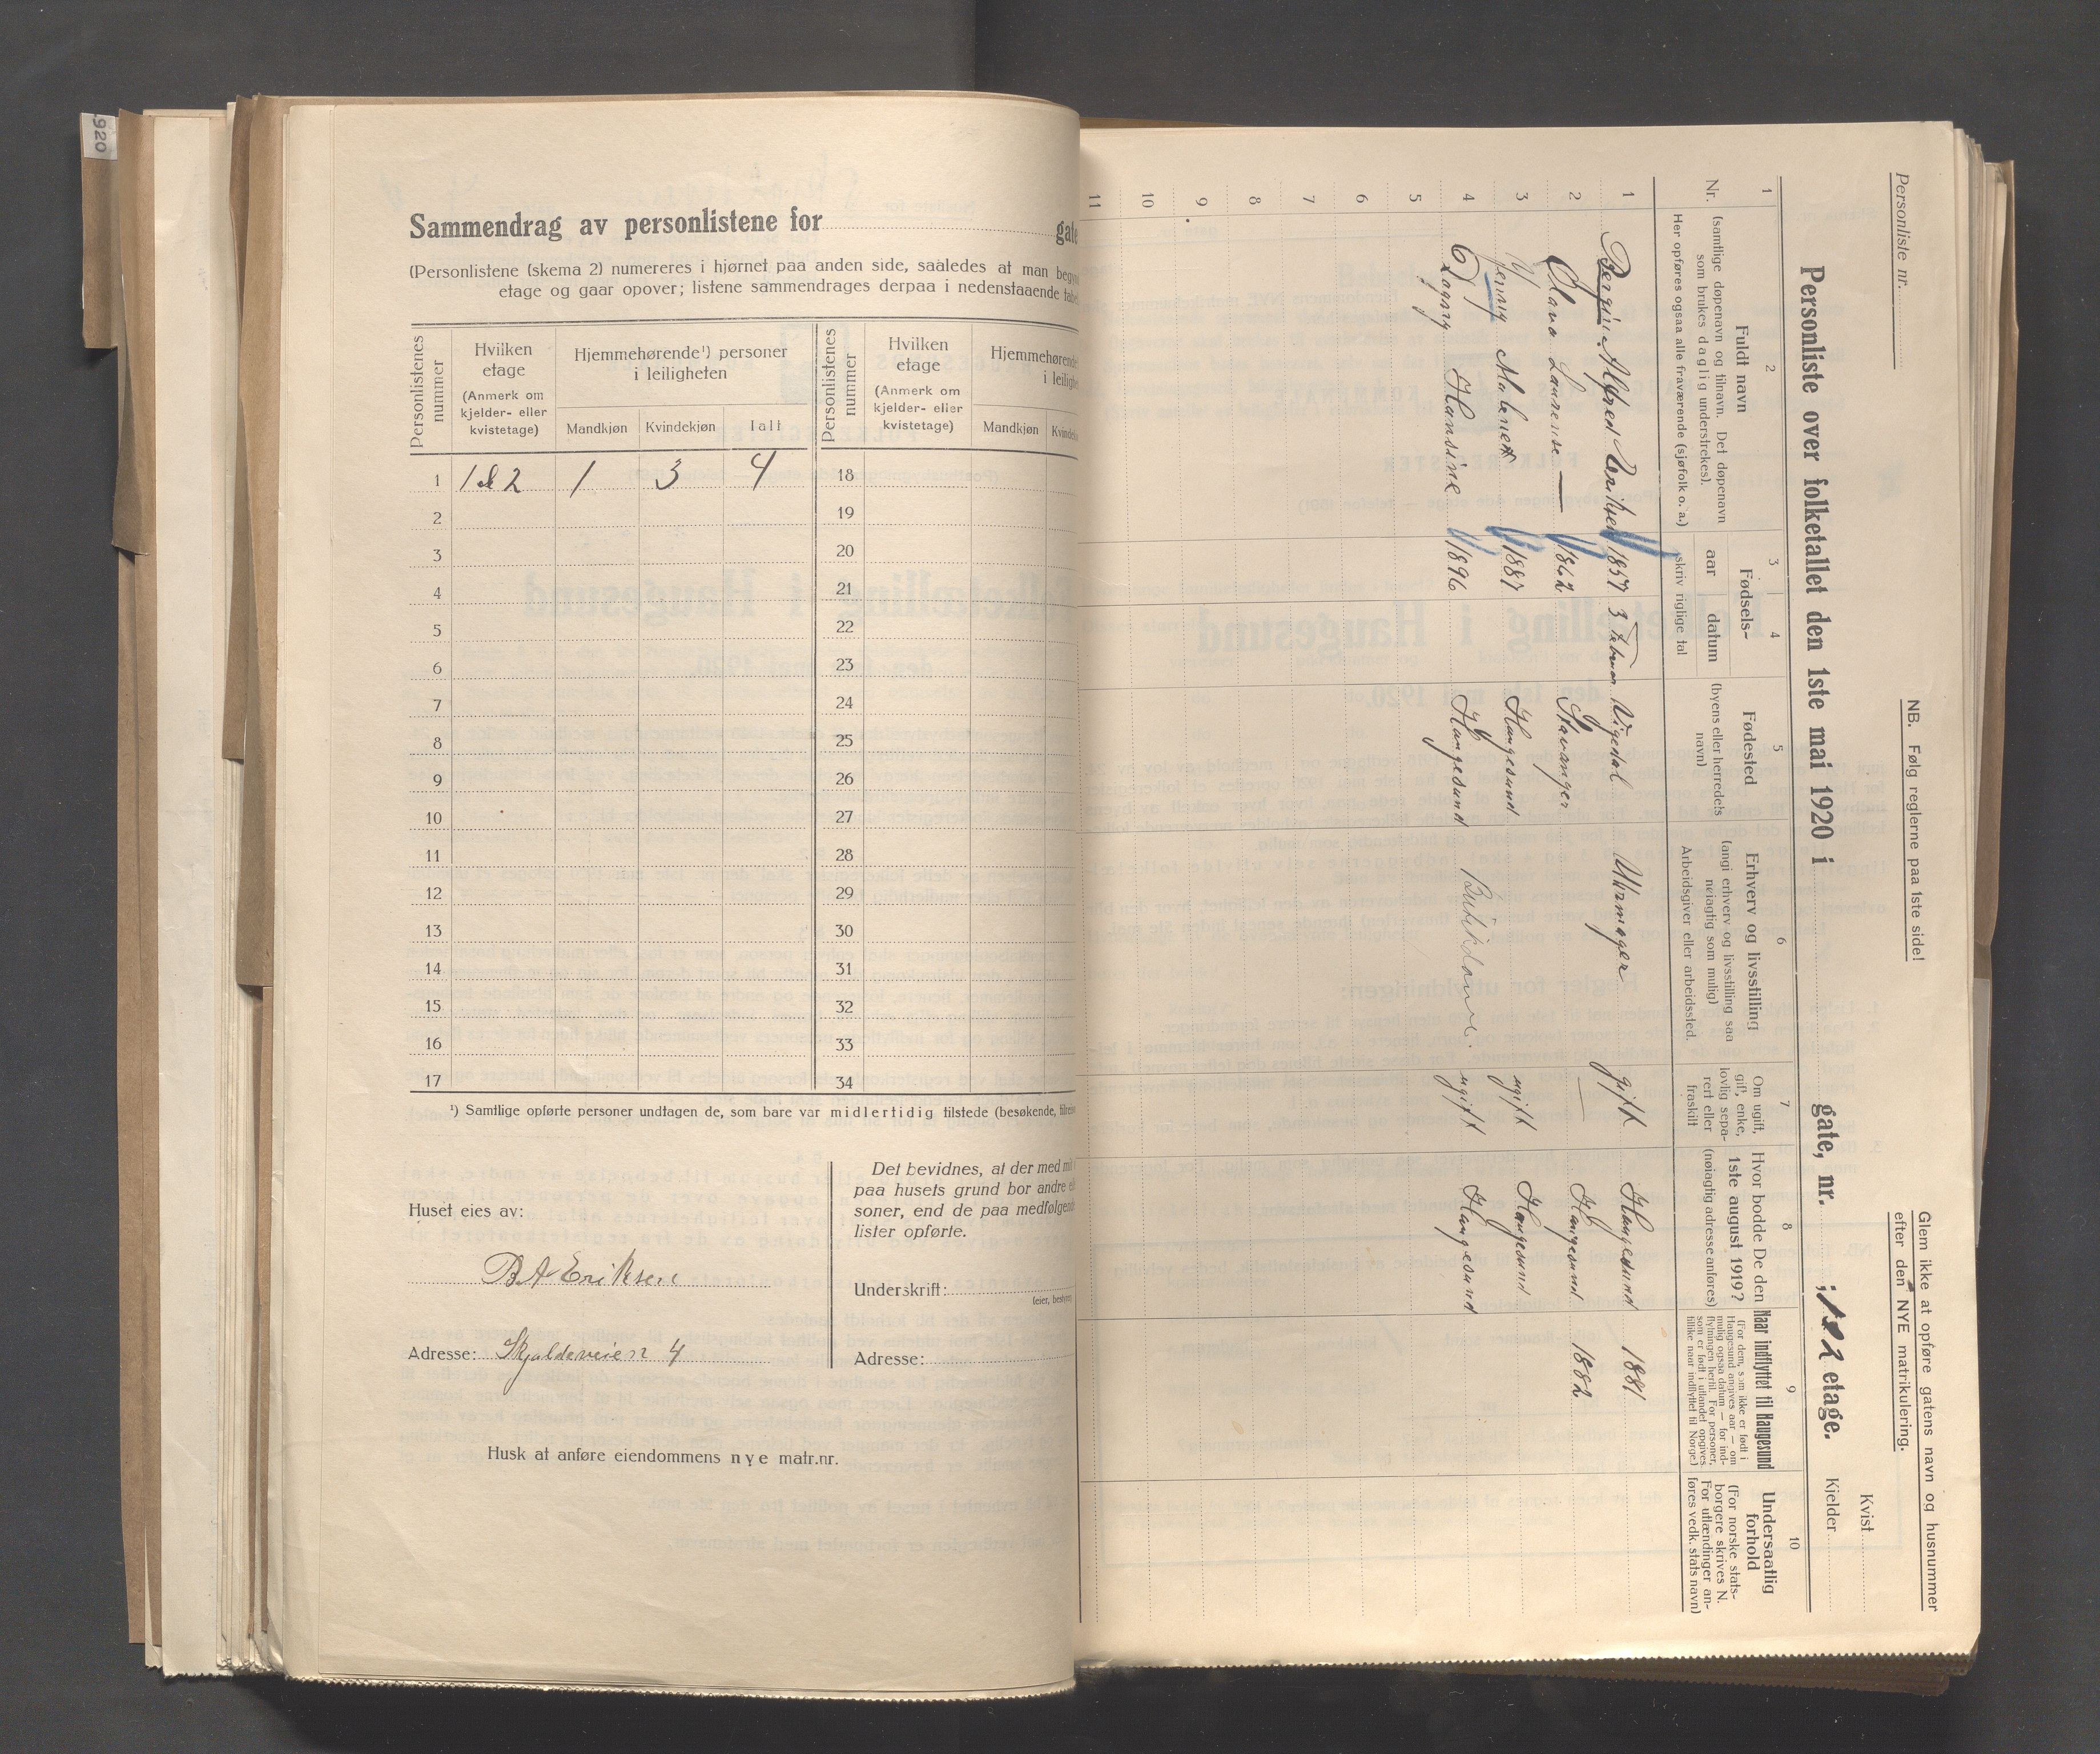 1920
Sammendrag av personlistene for gate
(Personlistene (skema 2) numereres i hjørnet paa anden side, saaledes at man
etage og gaar opover; listene sammendrages derpaa i nedenstaaende
Personlistenes nummer
Hvilken etage
(Anmerk om kjelder- eller kvistetage)
Hjemmehørende¹) personer i leiligheten
Mandkjøn Kvindekjøn Ialt
Personlistenes nummer
Hvilken etage
(Anmerk om kjelder- eller kvistetage)
Mandkjøn
1 1 & 2 1 3 4 18
2 19
3 20
4 21
5 22
6 23
7 24
8 25
9 26
10 27
11 28
12 29
13 30
14 31
15 32
16 33
17 34
¹) Samtlige opførte personer undtagen de, som bare var midlertidig tilstede (besøkende,
Huset eies av:
B A Eriksen
Adresse: Skjoldaveien 4
Det bevidnes, at der med
paa husets grund bor andre
soner, end de paa medfølgende
lister opførte.
Underskrift:
(eier,
Adresse:
Husk at anføre eiendommens nye matr.nr.
Personliste nr.
NB. Følg reglerne paa 1ste side!
Glem ikke at opføre gatens navn og husnummer
efter den NYE matrikulering.
Kvist
Personliste over folketallet den 1ste mai 1920 i gate, nr. ; 1 & 2 etage.
Kjelder
1 2 3 4 5 6 7 8 9 10
Nr.
Fuldt navn
(samtlige døpenavn og tilnavn. Det døpenavn
som brukes daglig understrekes).
Her opføres ogsaa alle fraværende (sjøfolk o. a.)
Fødsels-
aar datum
skriv riglige tal
Fødested
(byens eller herredets
navn)
Erhverv og livsstilling
(angi erhverv og livsstilling saa
nøiagtig som mulig)
Arbeidsgiver eller arbeidssted.
Om ugift,
gift, enke,
lovlig sepa-
rert eller
fraskilt
Hvor bodde De den
1ste august 1919?
(nøiagtig adresse anføres)
Naar indflyttet til Haugesund
(For dem, som ikke er født i
Haugesund angives aar — om
mulig ogsaa datum — for ind-
flytningen hertil. For personer,
som er født i utlandet opgives
tillike naar indflyttet til Norge.)
Undersaatlig
forhold
(For norske stats-
borgere skrives N.
For utlændinger an-
føres vedk. stats navn)
1 Alfred Eriksen 1857 3 Vigedal Uhrmager gift Haugesund 1881
2 Olava Laurense — 1862 Stavanger — Haugesund 1882
3 Jenny 1887 Haugesund ugift Haugesund
4 Dagny Hansine 1896 Haugesund Butikdame. ugift Haugesund
5
6
7
8
9
10
11